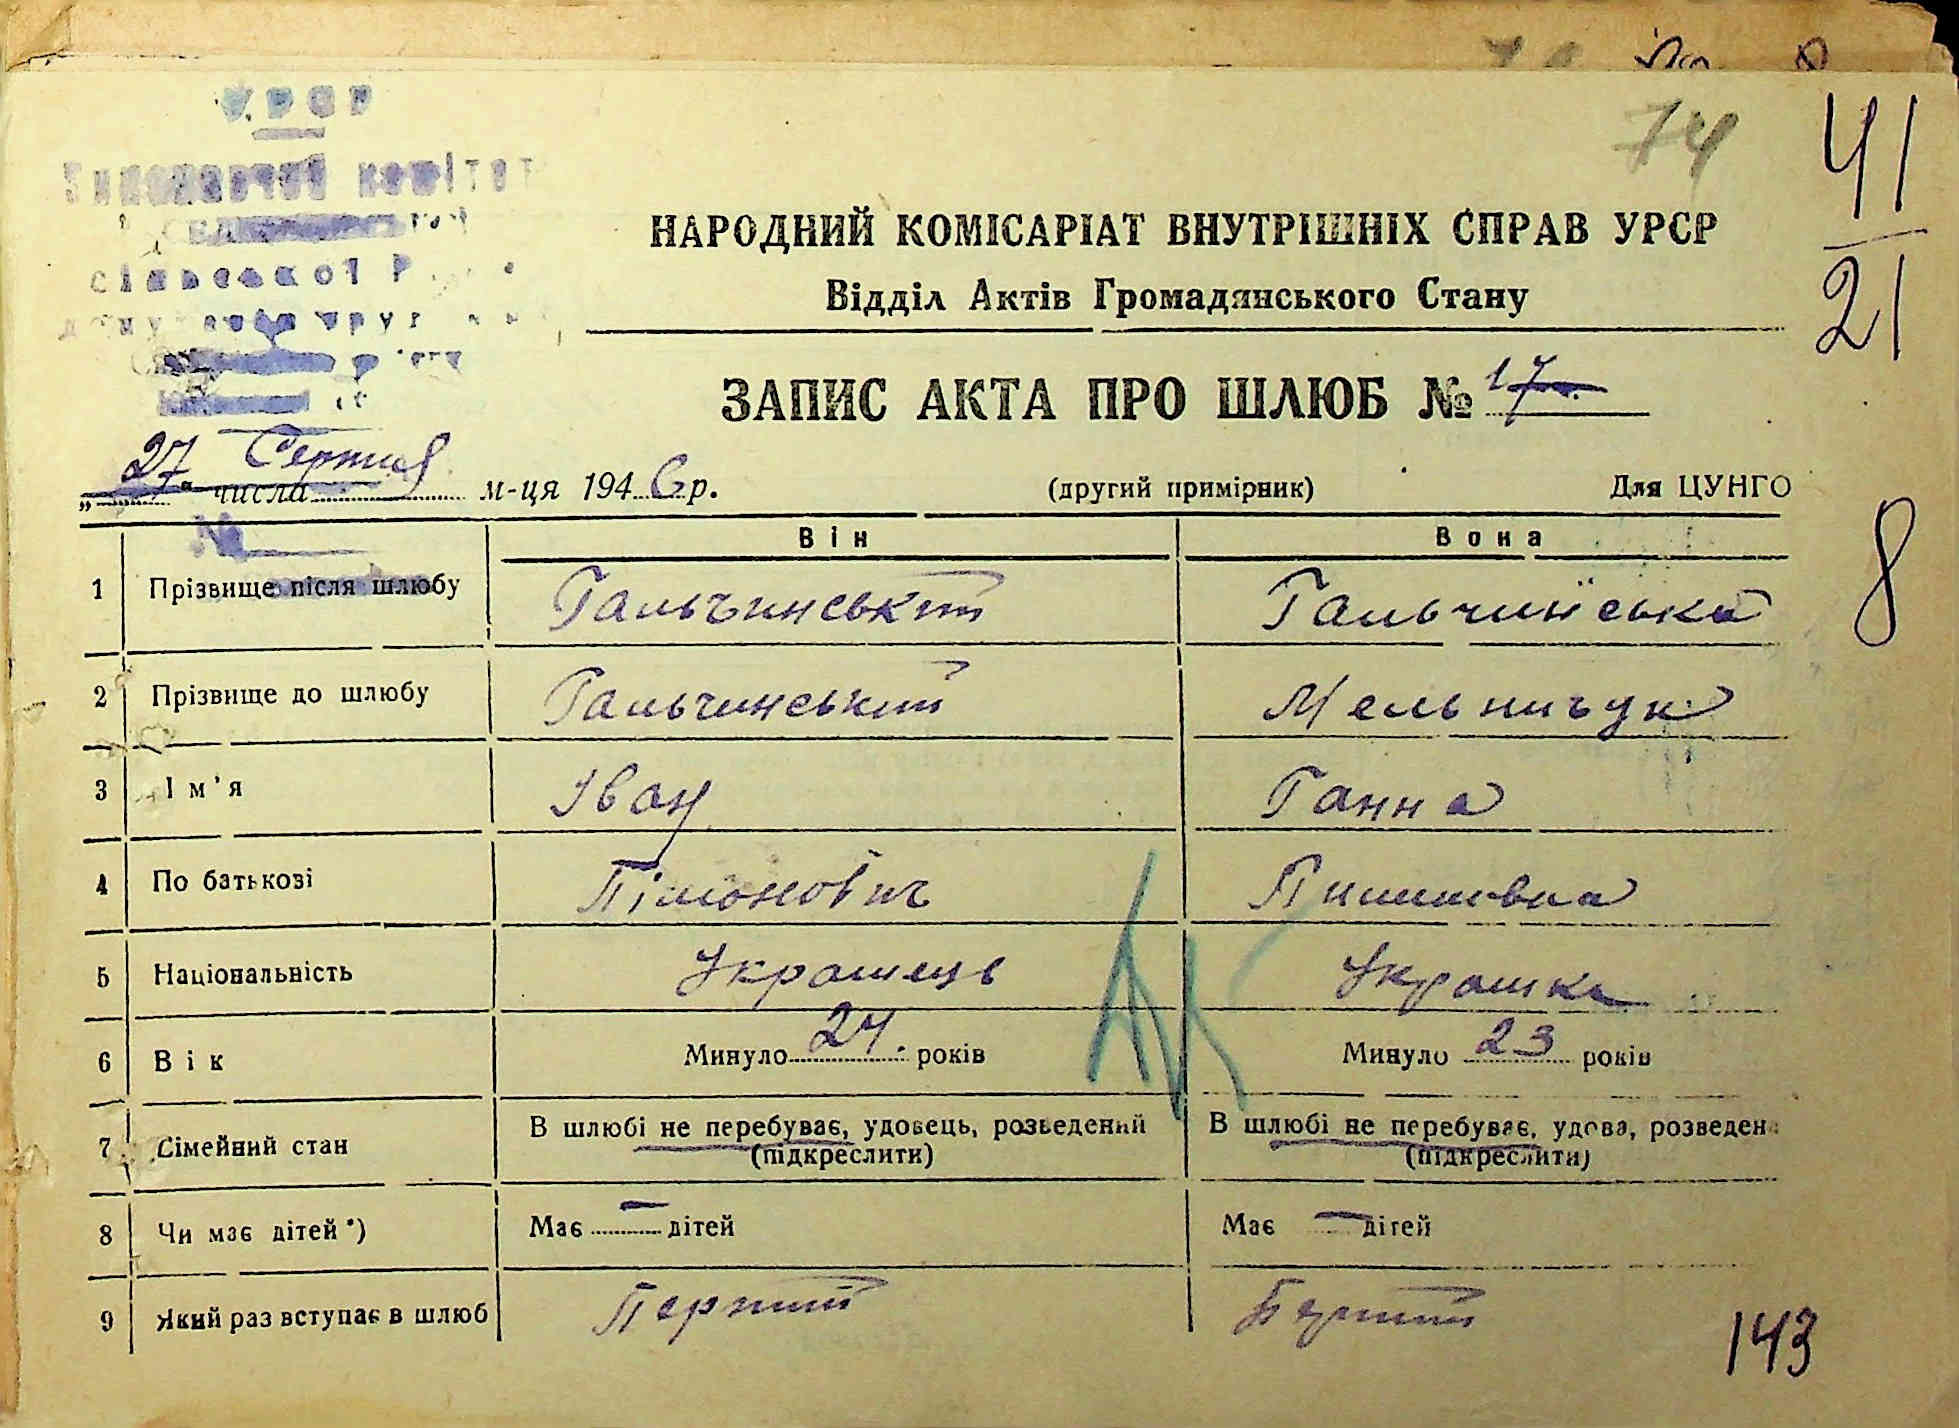 74
41
21
УРСР
Виконавчий комітет
сільської
НАРОДНИЙ КОМІСАРІАТ ВНУТРІШНІХ СПРАВ УРСР
Відділ Актів Громадянського Стану
ЗАПИС АКТА ПРО ШЛЮБ № 17
„27“ числа Серпня м-ця 1946 р. (другий примірник) Для ЦУНГО
№
8
Він Вона
1 Прізвище після шлюбу Гальчинський Гальчинська
2 Прізвище до шлюбу Гальчинський Мельничук
3 Ім'я Іван Ганна
4 По батькові
5 Національність Українець Українка
6 Вік Минуло 24 років Минуло 23 років
7 Сімейний стан В шлюбі не перебуває, удовець, розведений (підкреслити) В шлюбі не перебуває, удова, розведена (підкреслити)
8 Чи має дітей *) Має — дітей Має — дітей
9 Який раз вступає в шлюб Перший
АК
143